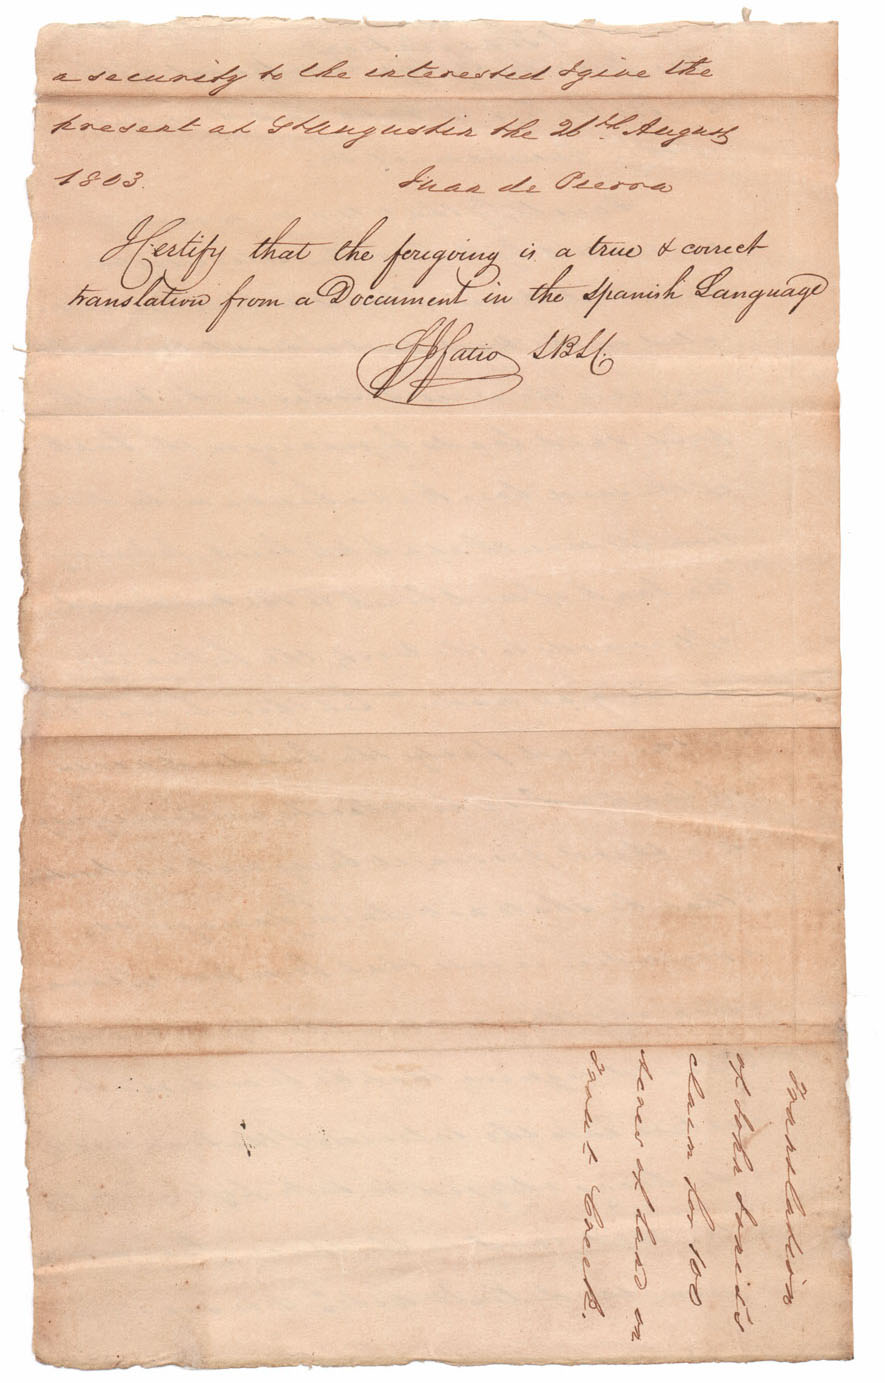 a security to the interested I give the
present at St Augustin the 26th August
1803. Juan de Pierra
I Certify that the foregoing is a true & correct
translation from a Document in the Spanish Language
Fatio SBLC.
Translation
of John
claim for 100
Acres of Land on
Trout Creek.